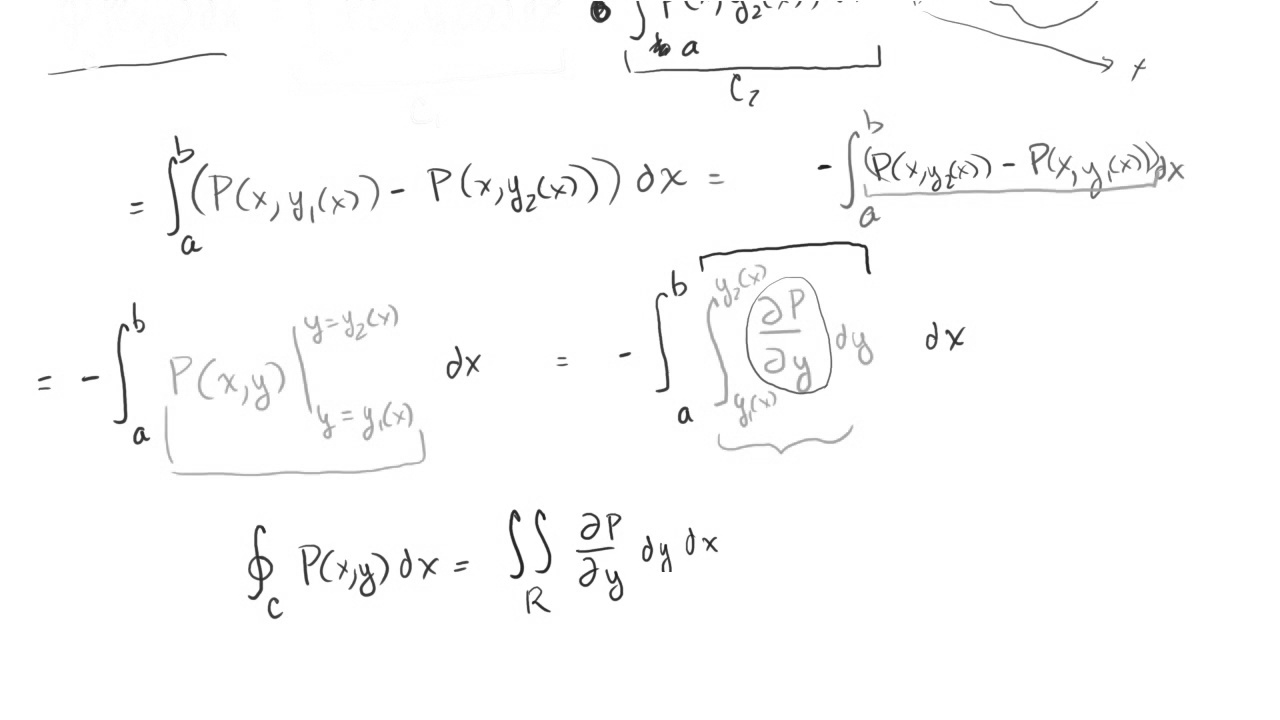 ∫ₐ P(x, y₂(x))
C₂ x
= ∫ₐᵇ (P(x, y₁(x)) - P(x, y₂(x))) dx = - ∫ₐᵇ (P(x, y₂(x)) - P(x, y₁(x))) dx
= - ∫ₐᵇ P(x,y) |_{y = y₁(x)}^{y = y₂(x)} dx = - ∫ₐᵇ ∫_{y₁(x)}^{y₂(x)} ∂P/∂y dy dx
∮_C P(x,y) dx = ∬_R ∂P/∂y dy dx